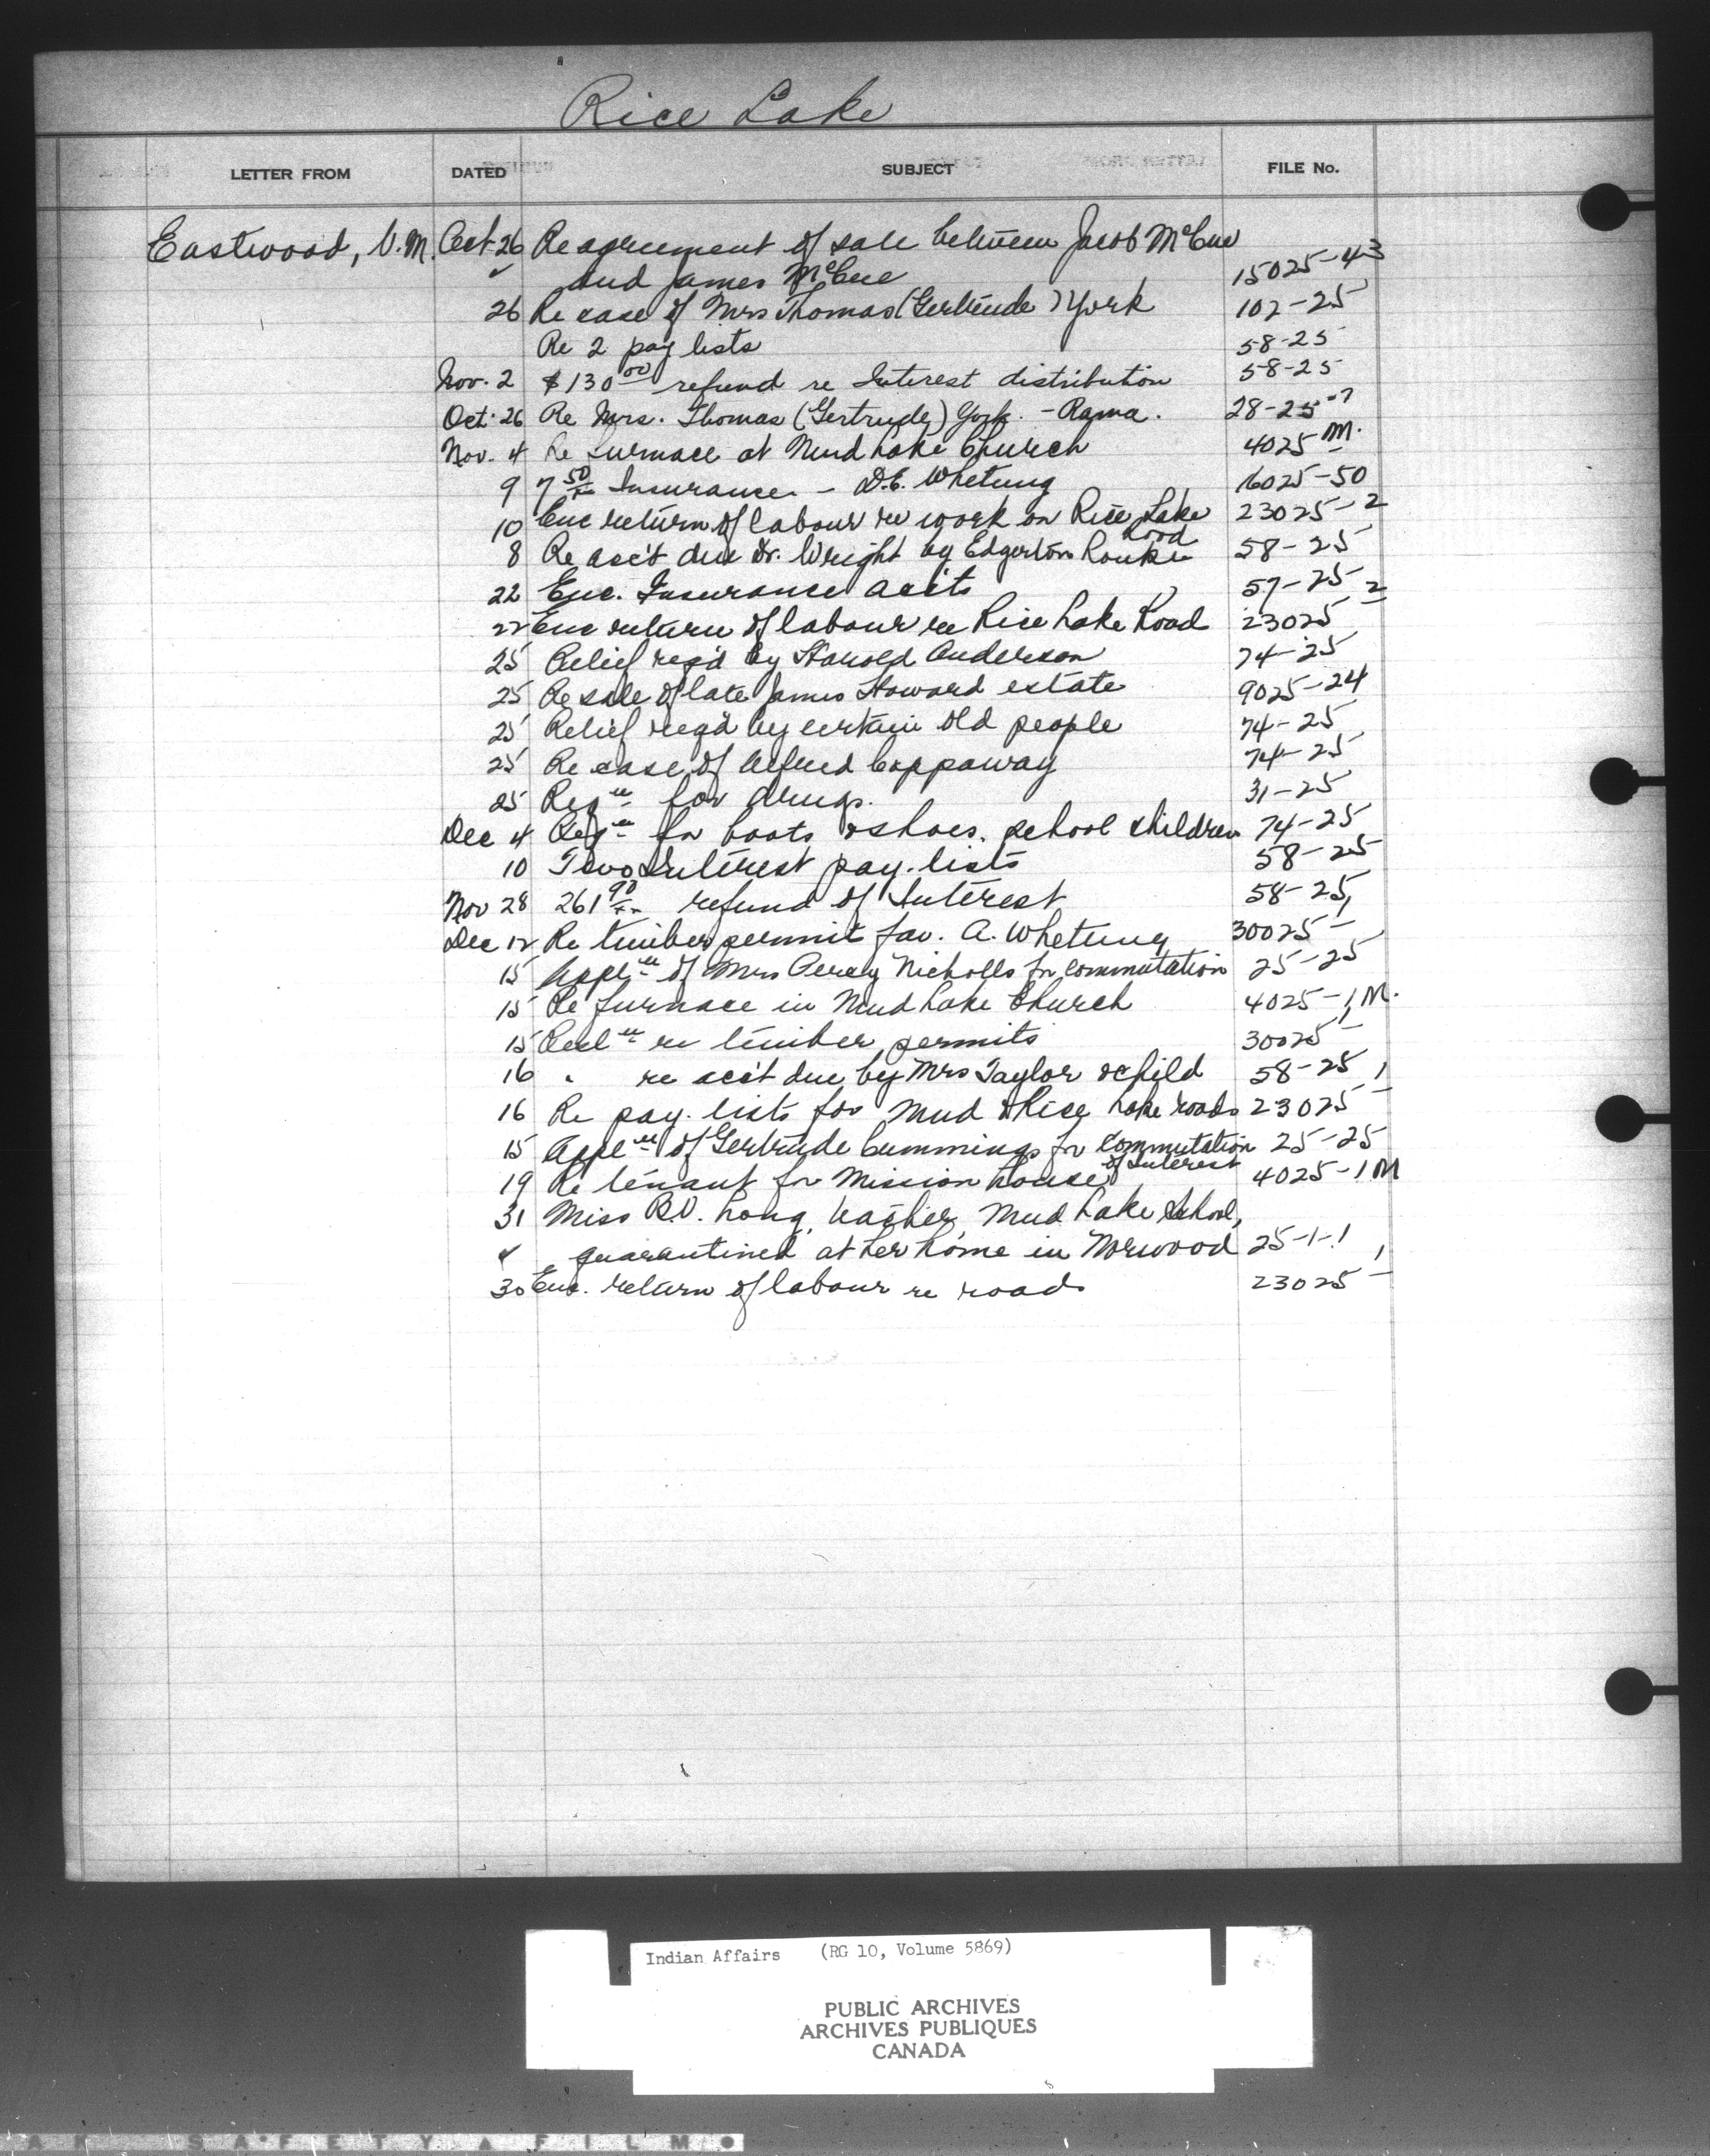 Rice Lake
LETTER FROM DATED SUBJECT FILE No.
Eastwood, V.M. Oct 26 Re agreement of sale between Jacob McCue
and James McCue 15025-43
26 Re case of Mrs Thomas (Gertrude) York 102-25
Re 2 pay lists 58-25
Nov. 2 $130 00 refund re Interest distribution 58-25
Oct. 26 Re Mrs. Thomas (Gertrude) York. - Rama. 28-25-7
Nov. 4 Re Furnace at Mud Lake Church 4025 M.
9 7 50/xx Insurance - D.E. Whetung 16025-50
10 Enc return of labour re work on Rice Lake Road 23025-2
8 Re acc't due Dr. Wright by Edgerton 58-25
22 Enc. Insurance acc'ts 57-25
22 Enc return of labour re Rice Lake Road 23025-2
25 Relief req'd by Harold Anderson 74-25
25 Re sale of late James Howard estate 9025-24
25 Relief req'd by certain old people 74-25
25 Re case of Alfred Coppaway 74-25
25 Reqn for drugs. 31-25
Dec 4 Reqn for boots & shoes, school children 74-25
10 Two Interest pay. lists 58-25
Nov 28 261 90/xx refund of Interest 58-25
Dec 12 Re timber permit fav. A. Whetung 30025-1
15 Appln of Mrs Percy Nicholls for commutation 25-25
15 Re furnace in Mud Lake Church 4025-1 M.
15 re timber permits 30025-1
16 " re acc't due by Mrs Taylor & child 58-25
16 Re pay. lists for Mud & Rice Lake roads 23025-1
15 Appln of Gertrude Cummings for commutation of Interest 25-25
19 Re tenant for Mission house 4025-1 M
31 Miss R.V. Long, teacher, Mud Lake School,
quarantined at her home in Norwood 25-1-1
30 Enc. return of labour re roads 23025-1
Indian Affairs (RG 10, Volume 5869)
PUBLIC ARCHIVES
ARCHIVES PUBLIQUES
CANADA
SAFETY FILM